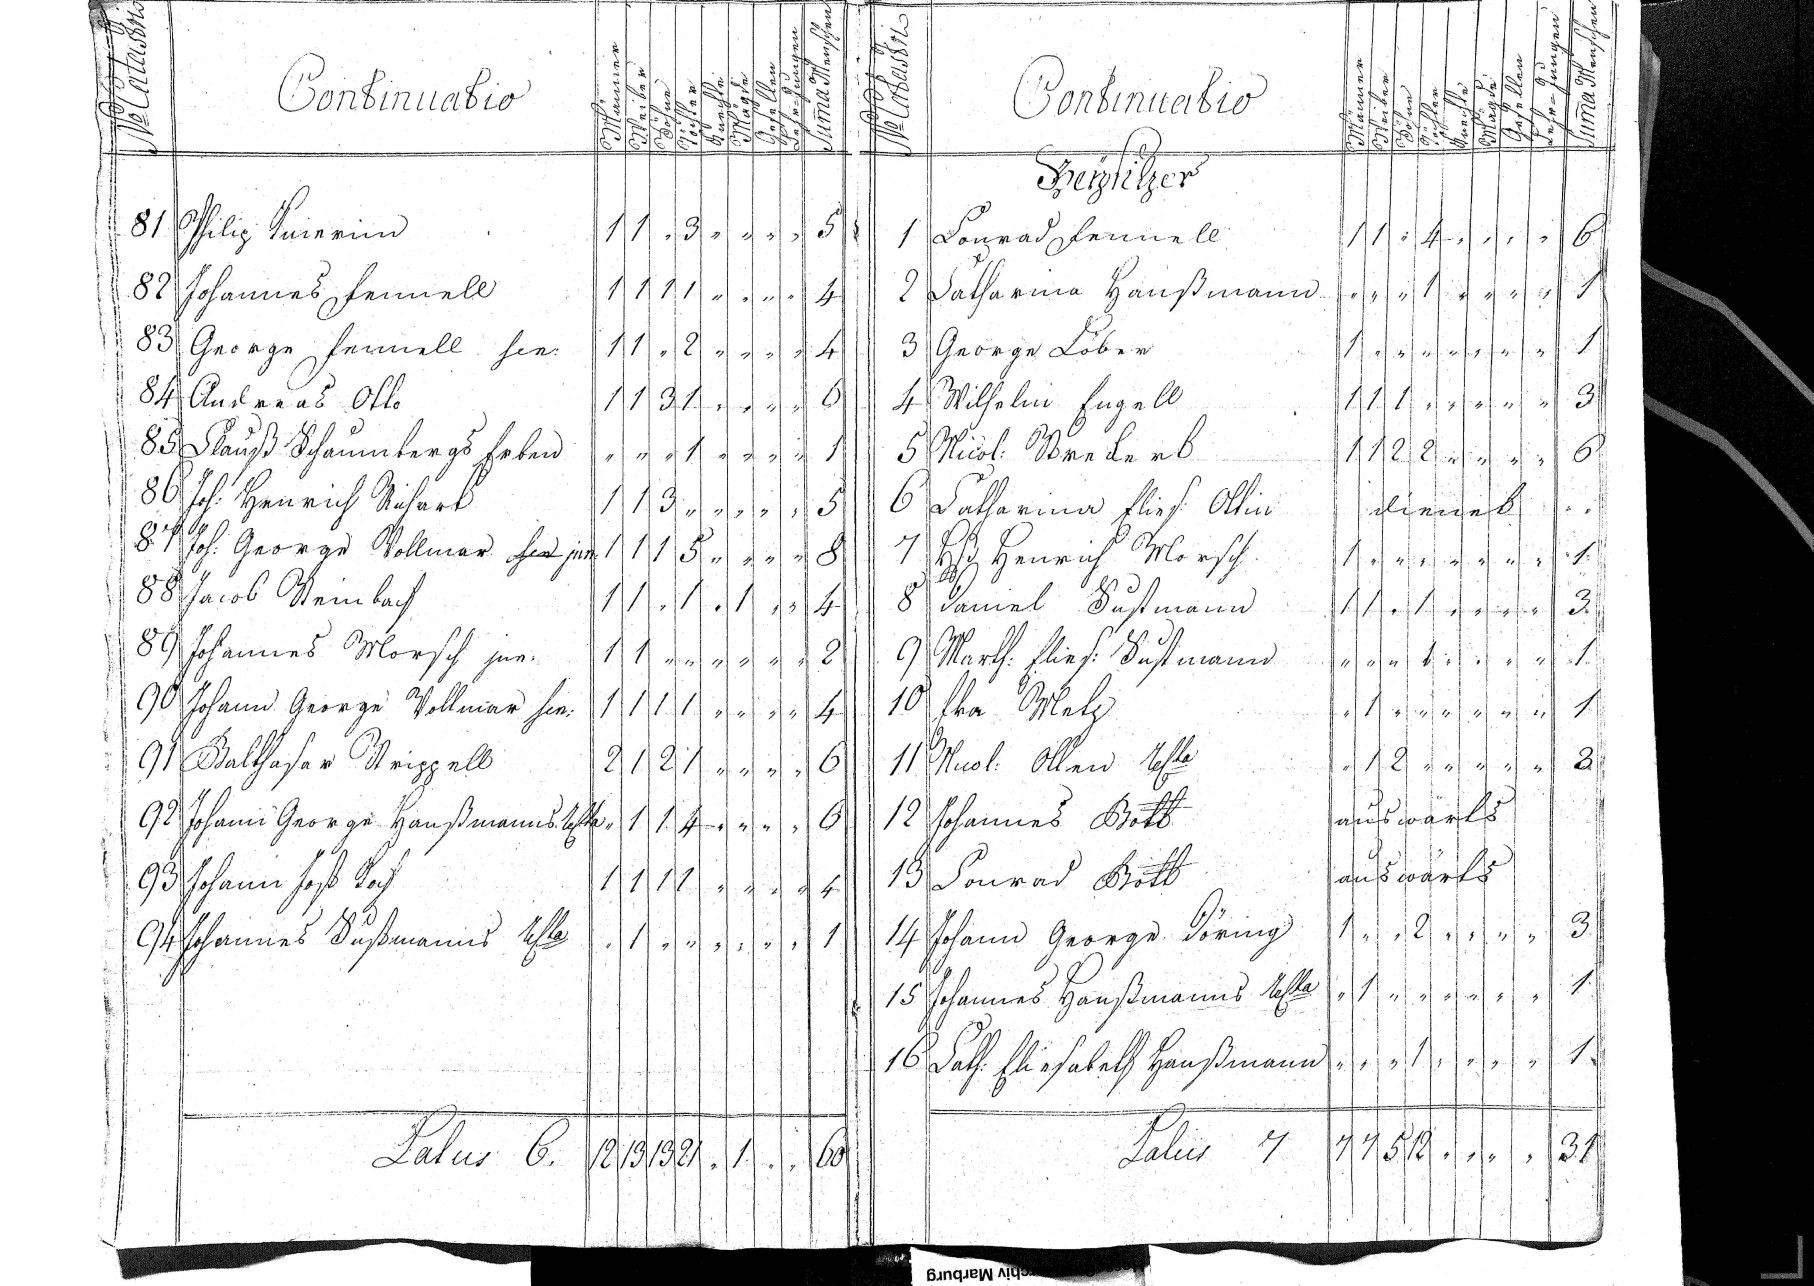 No Catastri
Continuatio
Männer
Weiber
Söhne
Töchter
Knechte
Mägde
Gesellen
Lehr-Jungen
Summa Menschen
81 Philip Knierim 1 1 „ 3 „ „ „ „ 5
82 Johannes Fennell 1 1 1 1 „ „ „ „ 4
83 George Fennell sen: 1 1 „ 2 „ „ „ „ 4
84 Andreas Otto 1 1 3 1 „ „ „ „ 6
85 Clauß Schaumbergs Erben „ „ „ 1 „ „ „ „ 1
86 Joh: Henrich Sichart 1 1 3 „ „ „ „ „ 5
87 Joh: George Vollmar jun: 1 1 1 5 „ „ „ „ 8
88 Jacob Steinbach 1 1 „ 1 „ 1 „ „ 4
89 Johannes Morsch jun: 1 1 „ „ „ „ „ „ 2
90 Johann George Vollmar sen: 1 1 1 1 „ „ „ „ 4
91 Balthasar Strippell 2 1 2 1 „ „ „ „ 6
92 Johann George Haußmanns Rel:ta „ 1 1 4 „ „ „ „ 6
93 Johann Jost Koch 1 1 1 1 „ „ „ „ 4
94 Johannes Sußmanns Rel:ta „ 1 „ „ „ „ „ „ 1
Latus 6. 12 13 13 21 „ 1 „ „ 60
No Catastri
Continuatio
Männer
Weiber
Söhne
Töchter
Knechte
Mägde
Gesellen
Lehr-Jungen
Summa Menschen
Beysitzer
1 Conrad Fennell 1 1 „ 4 „ „ „ „ 6
2 Catharina Haußmann „ „ „ 1 „ „ „ „ 1
3 George Löber 1 „ „ „ „ „ „ „ 1
4 Wilhelm Engell 1 1 1 „ „ „ „ „ 3
5 Nicol: 1 1 2 2 „ „ „ „ 6
6 Catharina Elies: Ottin dienet
7 Henrich Morsch 1 „ „ „ „ „ „ „ 1
8 Daniel Sustmann 1 1 „ 1 „ „ „ „ 3
9 Marth: Elies: Sustmann „ „ „ 1 „ „ „ „ 1
10 Eva Metz „ 1 „ „ „ „ „ „ 1
11 Nicol: Otten Rel:ta „ 1 2 „ „ „ „ „ 3
12 Johannes Bött auswärts
13 Conrad Bött auswärts
14 Johann George Döring 1 „ „ 2 „ „ „ „ 3
15 Johannes Haußmanns Rel:ta „ 1 „ „ „ „ „ „ 1
16 Cath: Eliesabeth Haußmann „ „ „ 1 „ „ „ „ 1
Latus 7 7 7 5 12 „ „ „ „ 31
Marburg